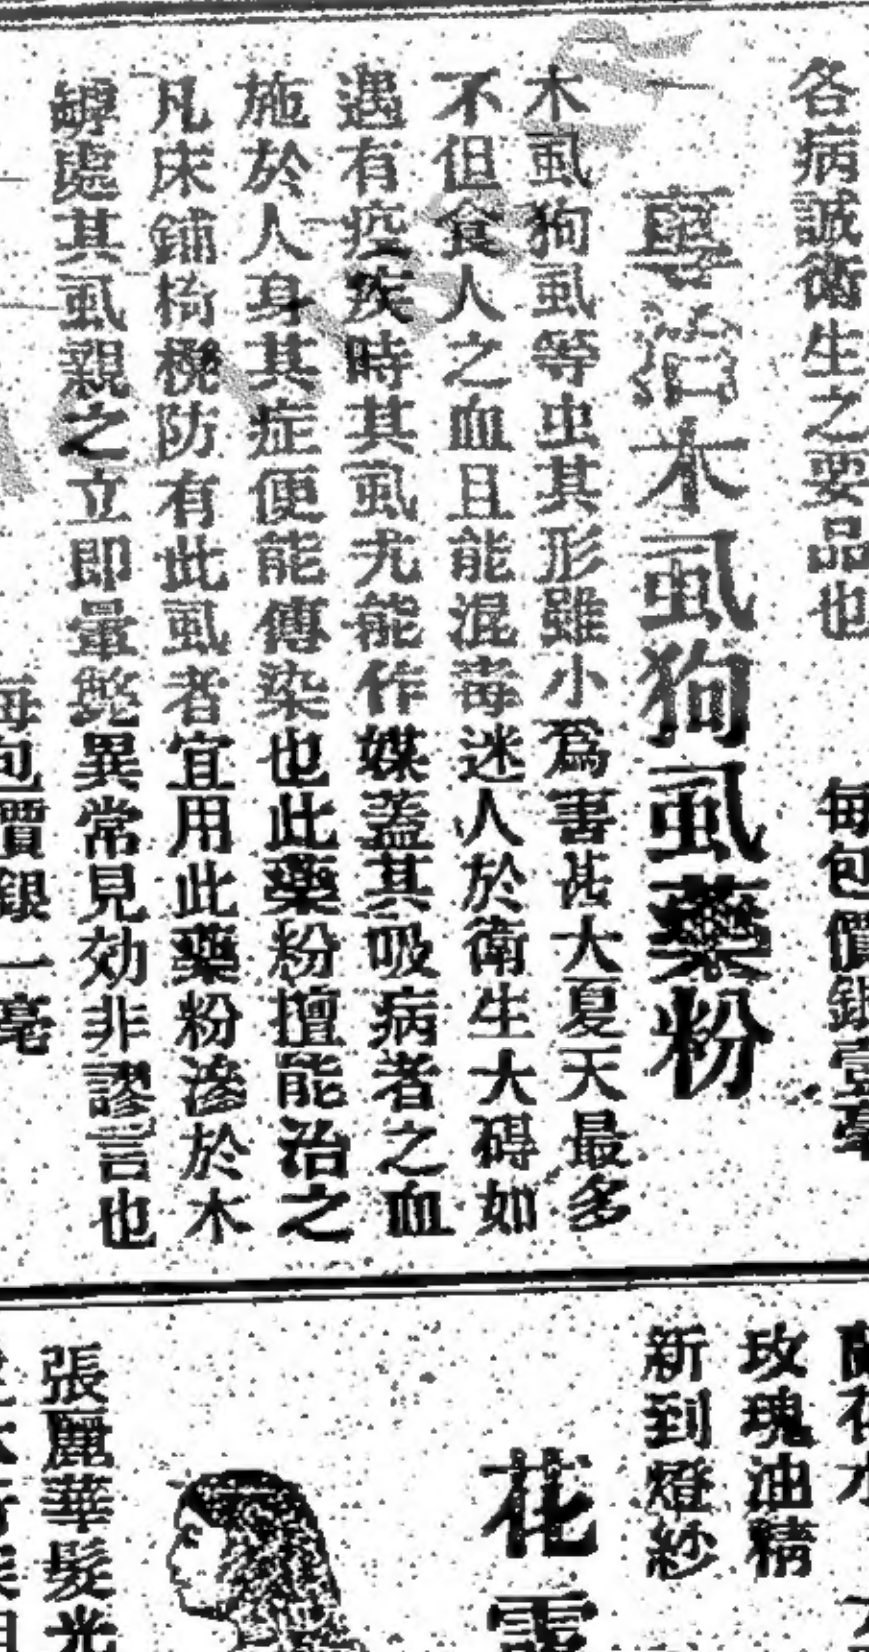 各病誠衛生之要品也
每包價銀壹毫
專治木虱狗虱藥粉
木虱狗虱等虫其形雖小爲害甚大夏天最多
不但食人之血且能混毒迷人於衛生大碍如
遇有疫疾時其虱尤能作媒蓋其吸病者之血
施於人身其症便能傳染也此藥粉擅能治之
凡床鋪椅櫈防有此虱者宜用此藥粉滲於木
罅處其虱親之立即暈斃異常見効非謬言也
每包價銀一毫
花水
玫瑰油精
新到燈紗
花露
張麗華髮光